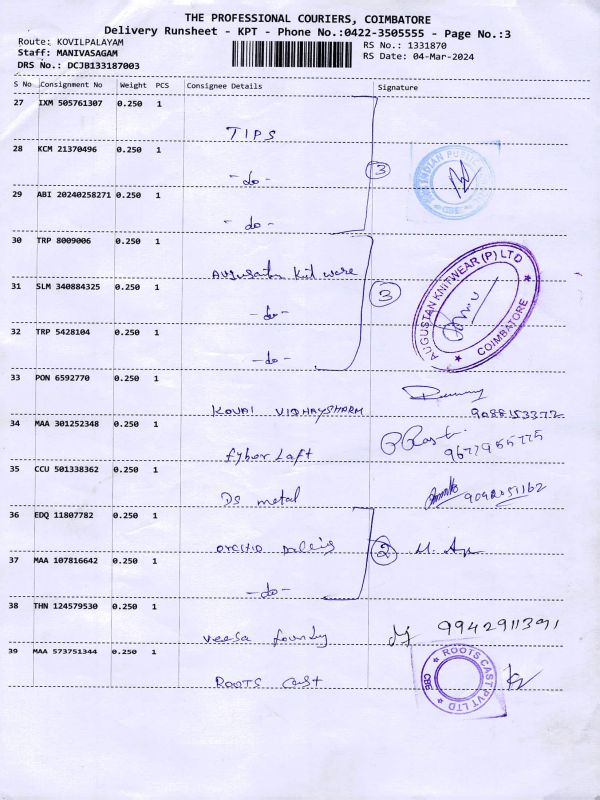 THE PROFESSIONAL COURIERS, COIMBATORE
Delivery Runsheet - KPT - Phone No.:0422-3505555 - Page No.:3
Route: KOVILPALAYAM
Staff: MANIVASAGAM
DRS No.: DCJB133187003
RS No.: 1331870
RS Date: 04-Mar-2024
S No Consignment No Weight PCS Consignee Details Signature
27 IXM 505761307 0.250 1
TIPS
28 KCM 21370496 0.250 1
- do -
3
29 ABI 20240258271 0.250 1
- do -
CBE
30 TRP 8009006 0.250 1
Augustan knit ware
31 SLM 340884325 0.250 1
- do -
3
AUGUSTAN KNITWEAR (P) LTD
COIMBATORE
32 TRP 5428104 0.250 1
- do -
33 PON 6592770 0.250 1
KOVAI VIDHAYSHARM
34 MAA 301252348 0.250 1
fyber Laft
35 CCU 501338362 0.250 1
DS metal
9092051162
36 EDQ 11807782 0.250 1
2
37 MAA 107816642 0.250 1
- do -
38 THN 124579530 0.250 1
veesa foundry
9942911391
39 MAA 573751344 0.250 1
ROOTS cast
ROOTS CAST PVT LTD
CBE